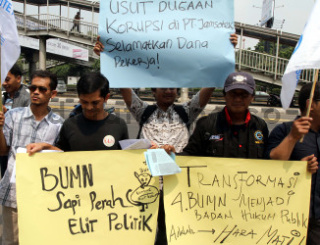 USUT DUGAAN
KORUPSI di PT Jamsostek
Selamatkan Dana
Pekerja!
BUMN
Sapi Perah
Elit Politik
TRANSFORMASI
4 BUMN MENJADI
BADAN HUKUM Publik
Adalah → HARGA MATI!